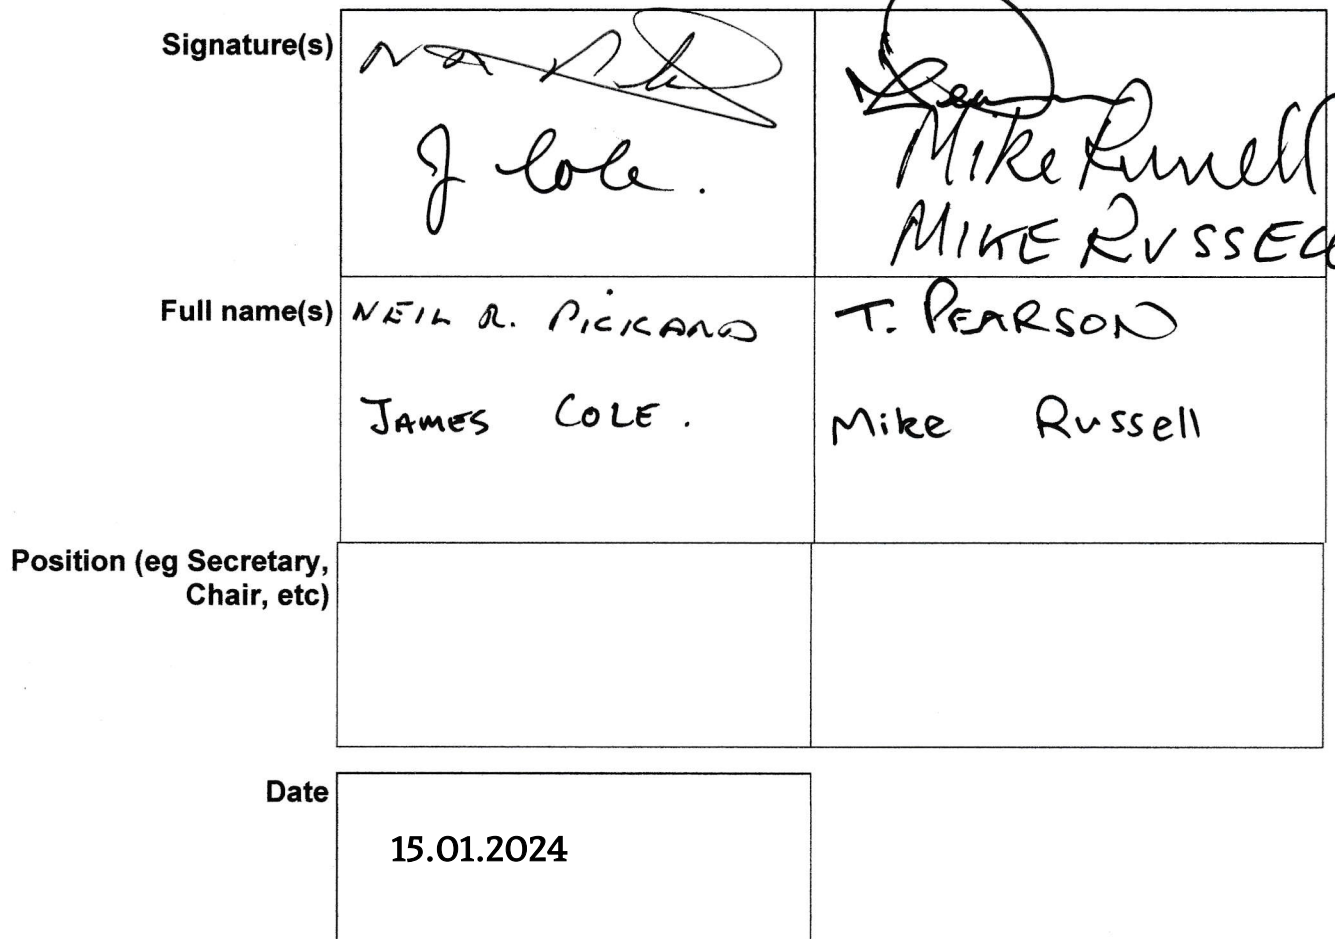 Signature(s)
J Cole.
Mike Russell
MIKE RUSSELL
Full name(s)
NEIL R. PICKARD
T. PEARSON
JAMES COLE.
Mike Russell
Position (eg Secretary,
Chair, etc)
Date
15.01.2024